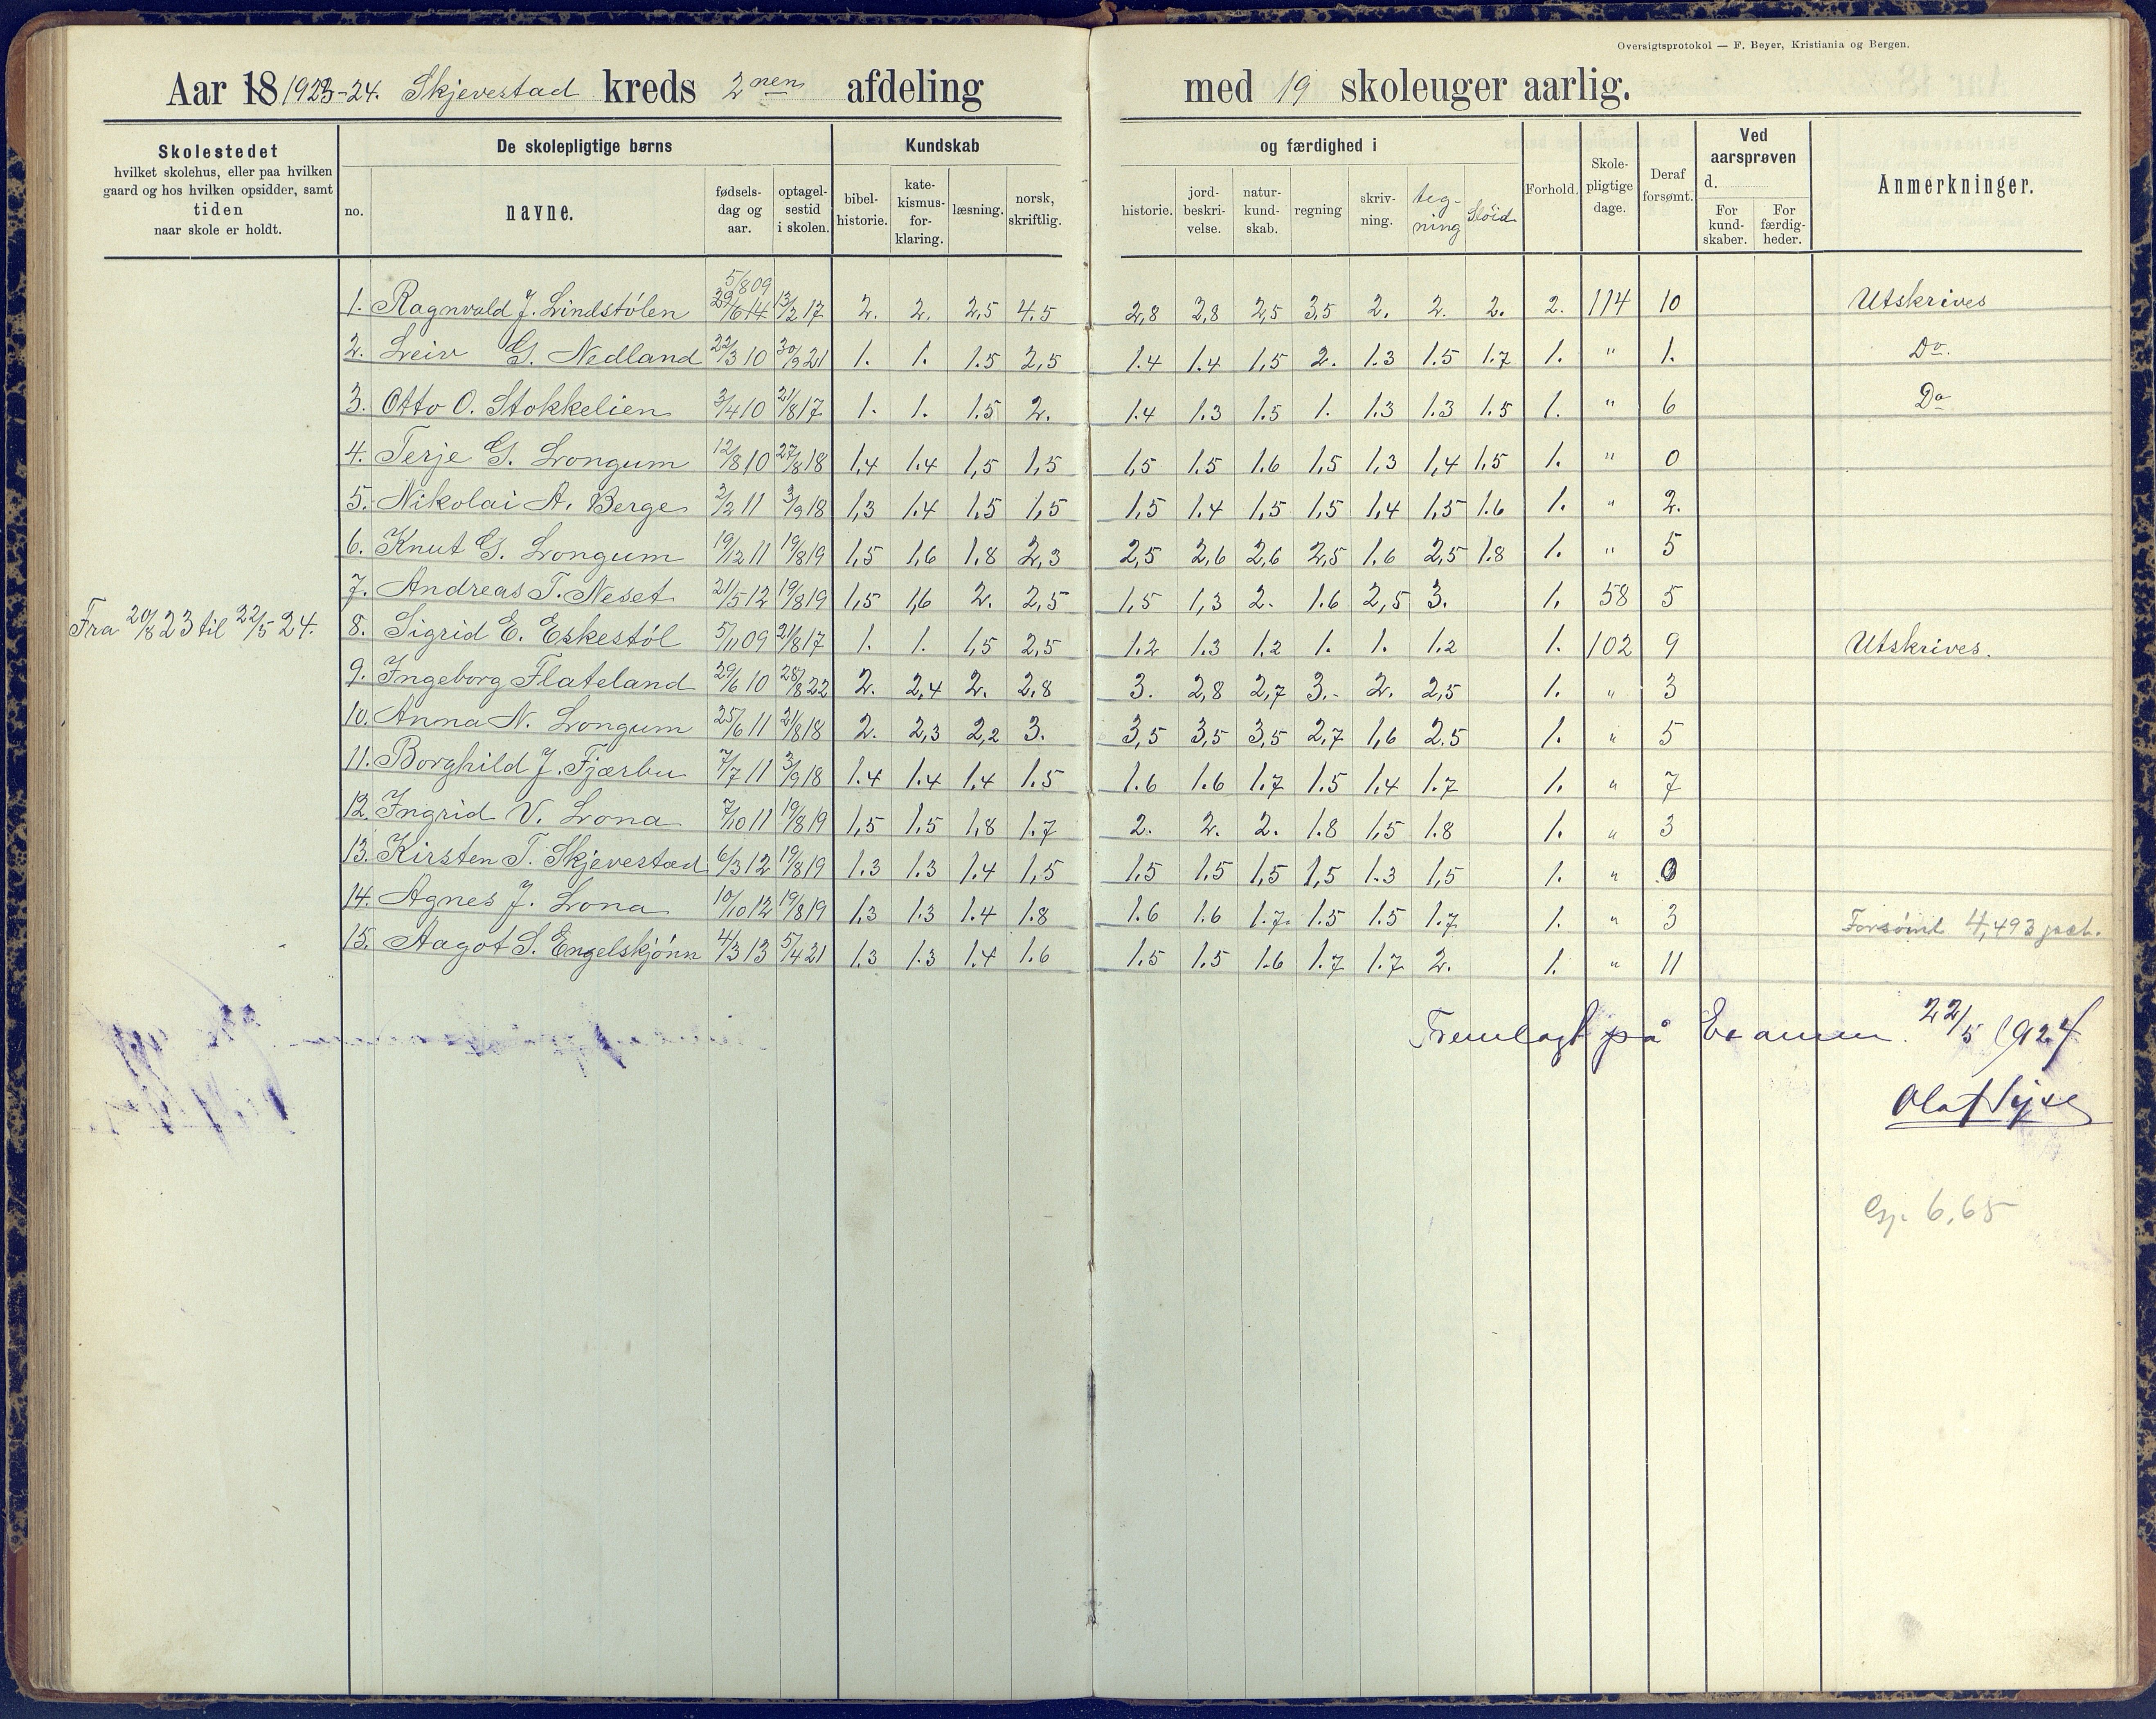 Oversigtsprotokol — F. Beyer, Kristiania og Bergen.
Aar 18 1923-24. Skjevestad kreds 2nen afdeling med 19 skoleuger aarlig.
Skolestedet hvilket skolehus, eller paa hvilken gaard og hos hvilken opsidder, samt tiden naar skole er holdt.
De skolepligtige børns
no. navne. fødsels-dag og aar. optagel-sestid i skolen.
Kundskab og færdighed i
bibel-historie. kate-kismus-for-klaring. læsning. norsk, skriftlig. historie. jord-beskri-velse. natur-kund-skab. regning skriv-ning. teg-ning Slöid
Forhold. Skole-pligtige dage. Deraf forsømt.
Ved aarsprøven d.
For kund-skaber. For færdig-heder.
Anmerkninger.
5/8 09
1. Ragnvald J. Lindstölen 29/6 14 13/2 17 2. 2. 2,5 4.5 2,8 2,8 2,5 3,5 2. 2. 2. 2. 114 10 Utskrives
2. Leiv G. Nedland 22/3 10 30/9 21 1. 1. 1.5 2,5 1.4 1.4 1,5 2. 1.3 1.5 1.7 1. " 1. Do.
3. Otto O. Stokkelien 3/4 10 21/8 17 1. 1. 1.5 2. 1.4 1.3 1.5 1. 1.3 1.3 1.5 1. " 6 Do
4. Terje G. Longum 12/8 10 27/8 18 1,4 1.4 1,5 1,5 1,5 1.5 1.6 1,5 1,3 1,4 1,5 1. " 0
5. Nikolai A. Berge 2/2 11 3/9 18 1,3 1.4 1.5 1,5 1,5 1.4 1,5 1,5 1,4 1,5 1.6 1. " 2.
6. Knut G. Longum 19/12 11 19/8 19 1,5 1,6 1.8 2,3 2,5 2,6 2,6 2,5 1.6 2,5 1.8 1. " 5
7. Andreas T. Neset 21/5 12 19/8 19 1,5 1,6 2. 2,5 1,5 1,3 2. 1.6 2,5 3. 1. 58 5
Fra 20/8 23 til 22/5 24.
8. Sigrid E. Eskestöl 5/11 09 21/8 17 1. 1. 1,5 2,5 1.2 1.3 1.2 1. 1. 1.2 1. 102 9 Utskrives.
9. Ingeborg Flateland 29/6 10 28/8 22 2. 2,4 2. 2,8 3. 2,8 2,7 3.- 2. 2,5 1. " 3
10. Anna N. Longum 25/6 11 21/8 18 2. 2,3 2,2 3. 3,5 3,5 3,5 2,7 1,6 2.5 1. " 5
11. Borghild J. Fjærbu 7/7 11 3/9 18 1.4 1.4 1,4 1.5 1.6 1.6 1.7 1.5 1.4 1.7 1. " 7
12. Ingrid V. Lona 7/10 11 19/8 19 1,5 1.5 1,8 1.7 2. 2. 2. 1.8 1,5 1.8 1. " 3
13. Kirsten T. Skjevestad 6/3 12 19/8 19 1.3 1.3 1.4 1,5 1.5 1.5 1,5 1,5 1.3 1,5 1. " 0
14. Agnes J. Lona 10/10 12 19/8 19 1,3 1.3 1.4 1.8 1.6 1.6 1.7. 1.5 1.5 1.7 1. " 3
15. Aagot S. Engelskjönn 4/3 13 5/4 21 1.3 1.3 1.4 1.6 1.5 1.5 1.6 1.7 1.7 2. 1. " 11
Forsömt 4,493 pct.
Fremlagt på Examen. 22/5 1924
6,65